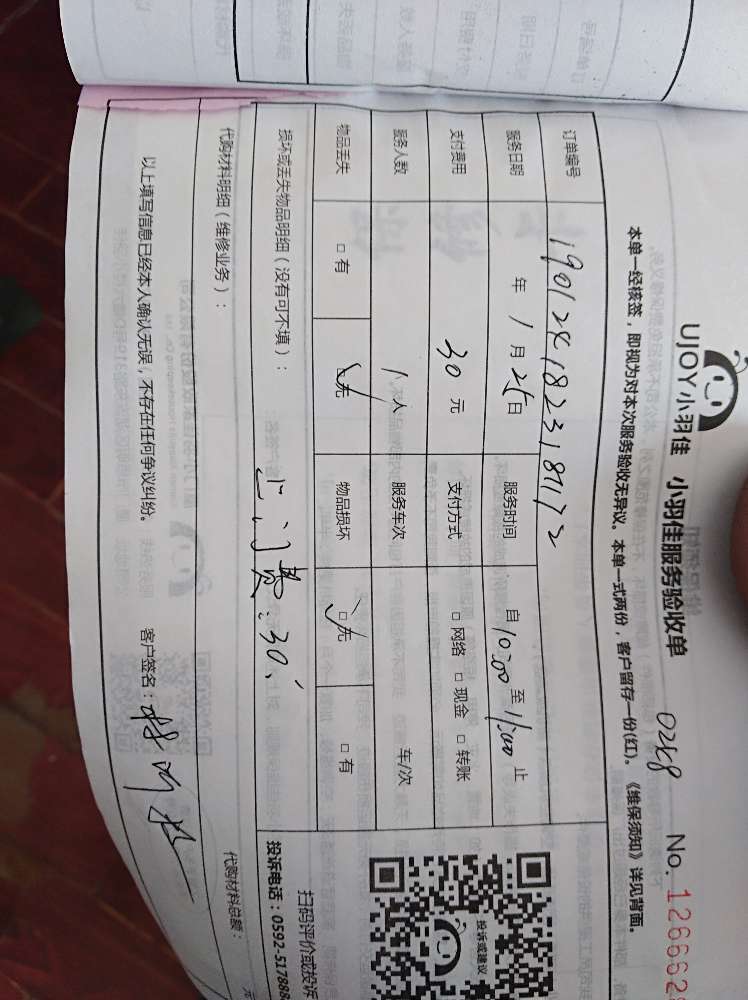 UJOY小羽佳 小羽佳服务验收单 0248 No. 126662
本单一经核签，即视为对本次服务验收无异议。本单一式两份，客户留存一份(红)。《维保须知》详见背面。
订单编号 190124182318172
服务日期 年 1 月 25 日 服务时间 自 10:00 至 11:00 止
支付费用 30 元 支付方式 □ 网络 □ 现金 □ 转账
服务人数 1 人 服务车次 车/次
物品丢失 □ 有 ☑ 无 物品损坏 ☑ 无 □ 有
损坏或丢失物品明细（没有可不填）：
上门费：30
代购材料明细（维修业务）：
代购材料总额： 元
以上填写信息已经本人确认无误，不存在任何争议纠纷。 客户签名：
投诉或建议
扫码评价或投诉
投诉电话：0592-5178888